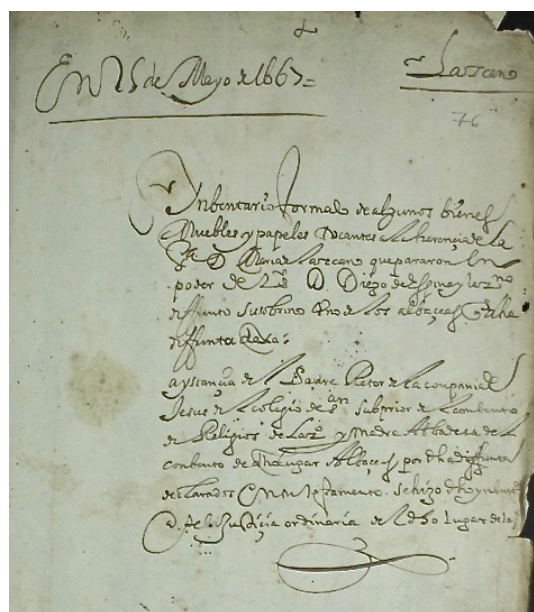 En 25 de Mayo de 1667=
Lazcano
76
Inbentario formal de algunos bienes
Muebles y papeles tocantes a la herencia de la
Sra D Maria de Lazcano que pararon en
poder de D. Diego de Espina y
diffunto su sobrino uno de los albaçeas
diffunta
a ystançia del Padre Retor de la conpania de
Jesus del colegio de Sn subprior del combento
de Religios de y Madre Abbadesa del
conbento de lugar Albaçeas por dha diffunta
declarados se hizo
de la Justiçia ordinaria del dho Lugar de la